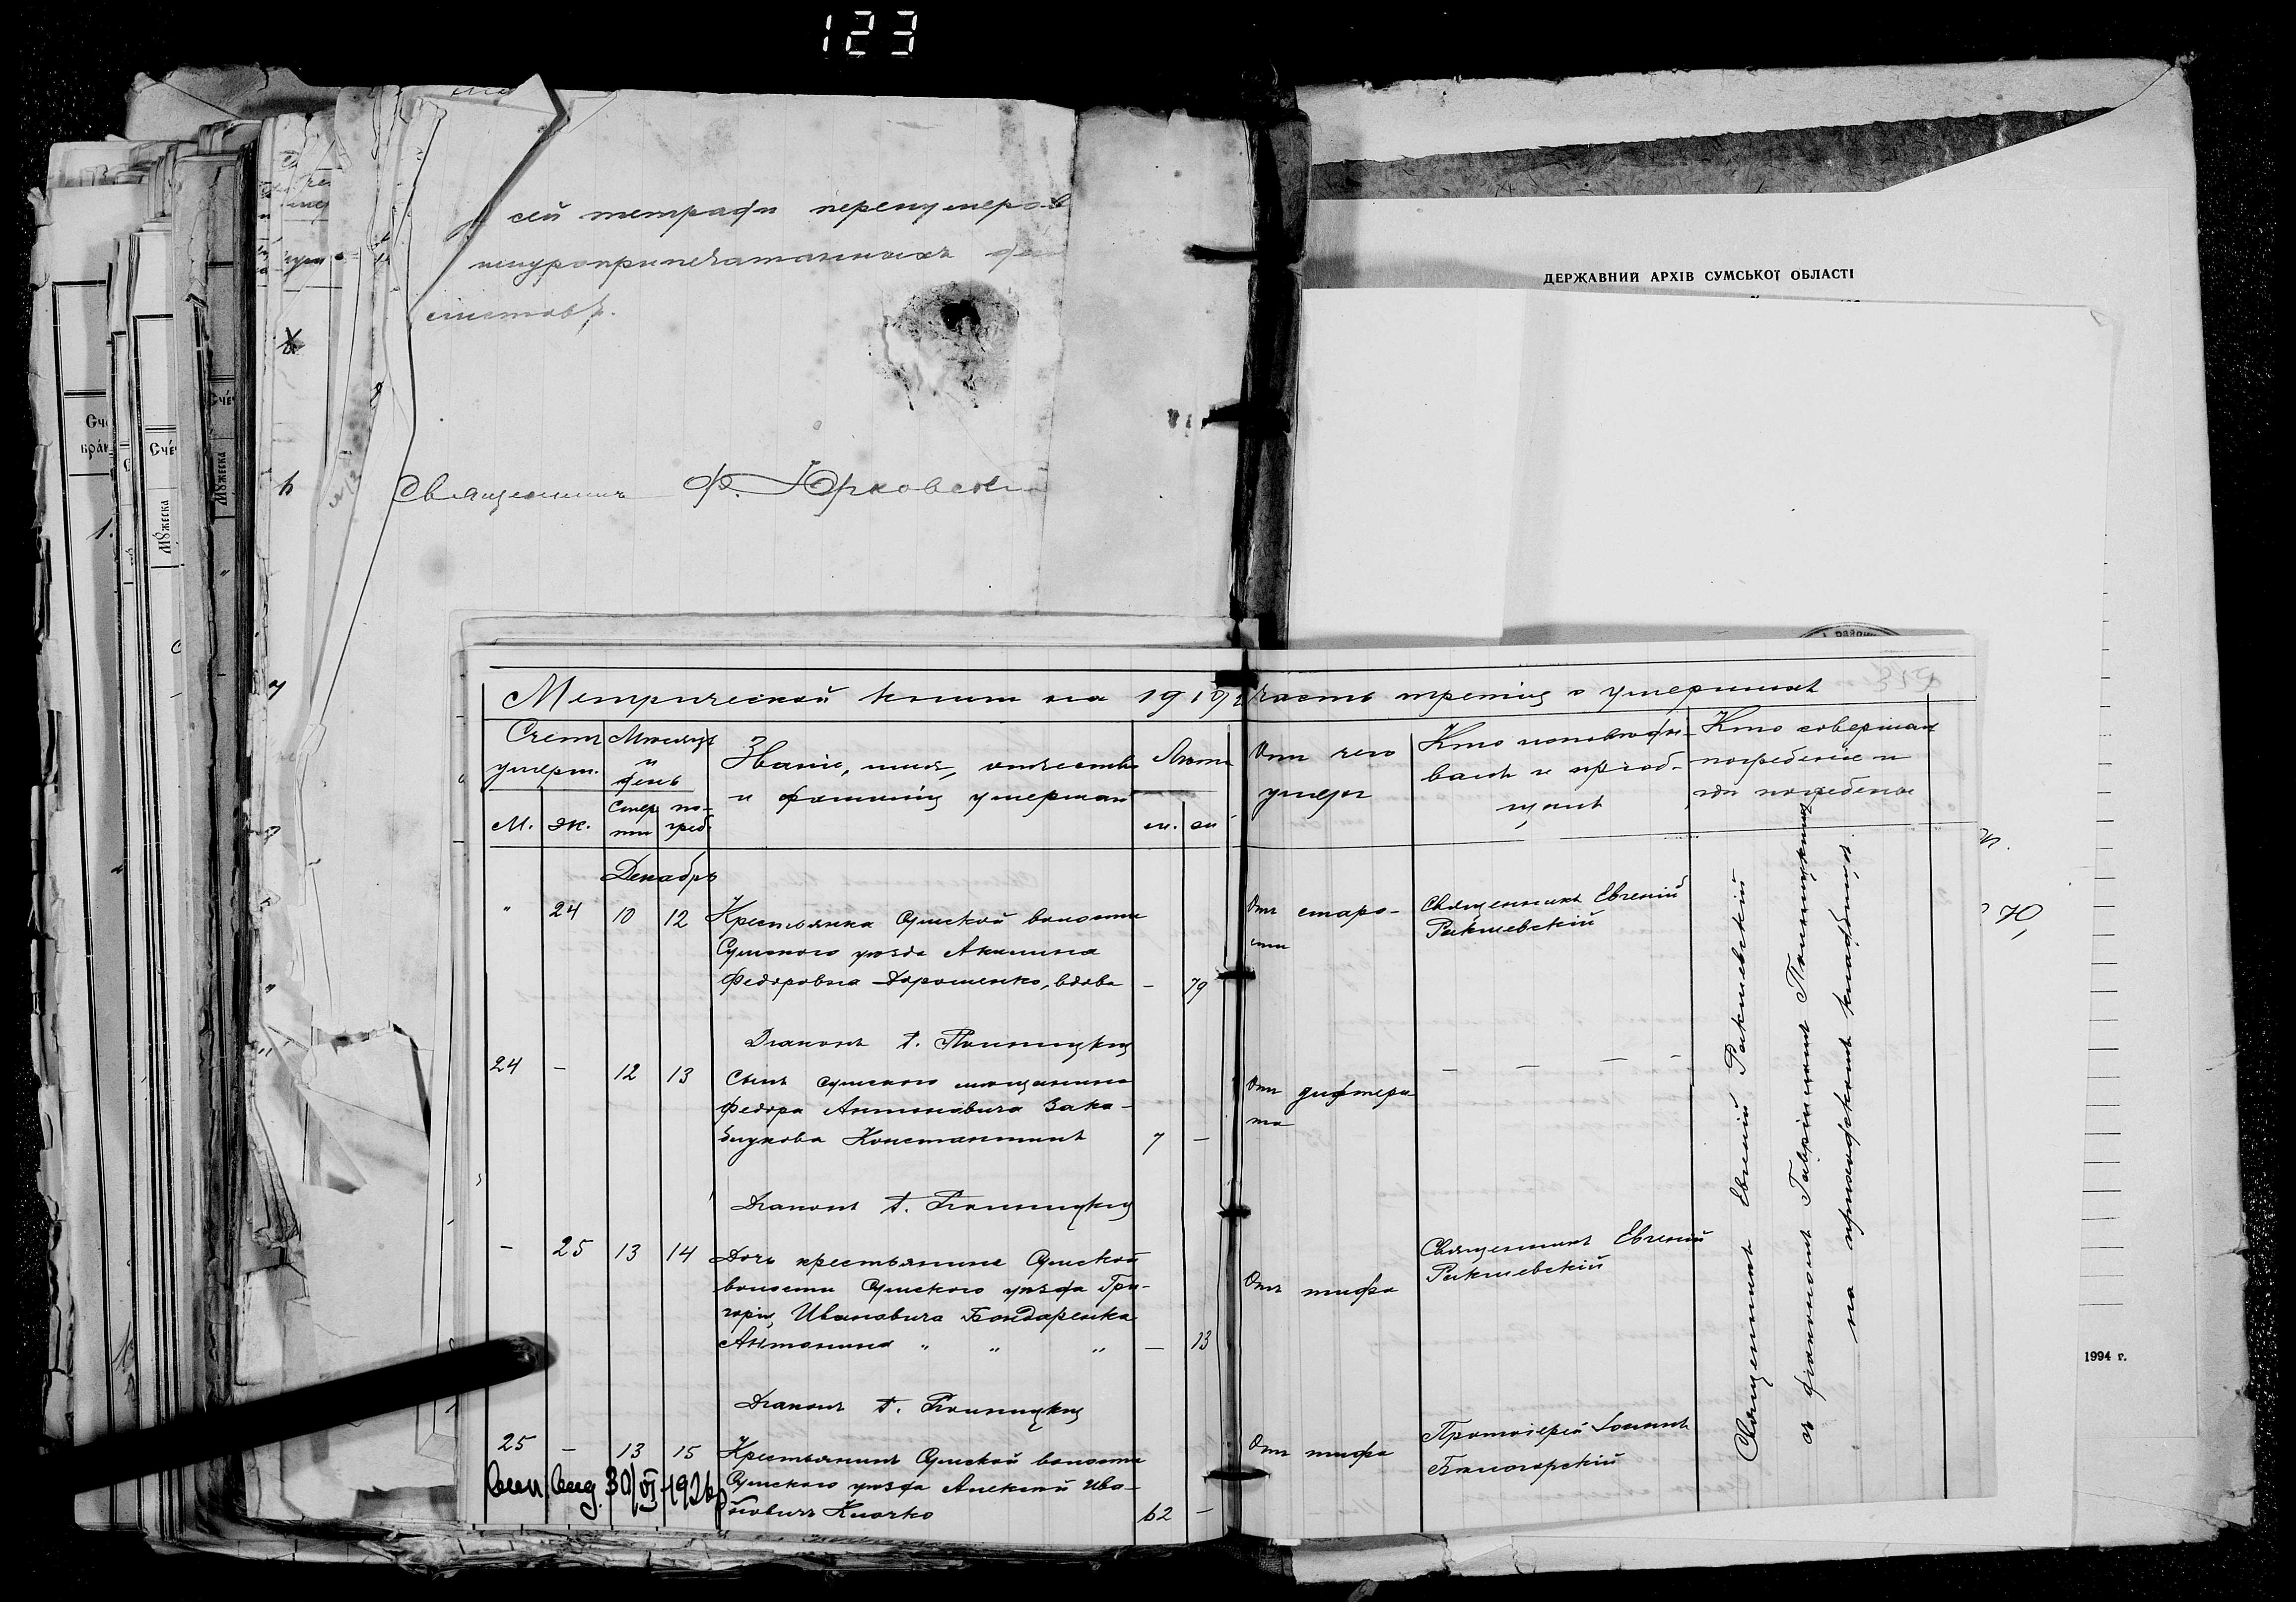 123
сей тетради перенумеров
шнуроприпечатанныхъ
листовъ.
Священникъ Ф. Юрковскій
ДЕРЖАВНИЙ АРХІВ СУМСЬКОЇ ОБЛАСТІ
1994 г.
Метрической книги на 1919 г. часть третія о умершихъ
Счетъ умерш.
М. Ж.
Мѣсяцъ и день
Смерти погреб.
Званіе, имя, отчество
и фамилія умершаго
Лѣта
м. ж.
Отъ чего
умеръ
Кто исповѣды-
валъ и пріоб-
щалъ
Кто совершалъ
погребеніе и
гдѣ погребены
Декабрь
" 24 10 12 Крестьянка Сумской волости
Сумского уѣзда Акилина
Федоровна Дорошенко, вдова - 79
Отъ старо-
сти
Священникъ Евгеній
Ракшевскій
Діаконъ Г. Полницкій
24 - 12 13 Сынъ сумского мѣщанина
Федора Антоновича Зака-
блукова Константинъ 7 -
Отъ дифтери
та
- - - -
Діаконъ Г. Полницкій
- 25 13 14 Дочь крестьянина Сумской
волости Сумского уѣзда Гри-
горія Ивановича Бондаренка
Антонина " " " - 13
Отъ тифа
Священникъ Евгеній
Ракшевскій
Діаконъ Г. Полницкій
25 - 13 15 Крестьянинъ Сумской волости
Сумского уѣзда Алексій Ива-
новичъ Клочко 62 -
Отъ тифа
Протоіерей Іоаннъ
Бѣлогорскій
30/VI-1926р
Священникъ Евгеній Ракшевскій
съ діакономъ Гавріиломъ Полницкимъ
на приходскомъ кладбищѣ.